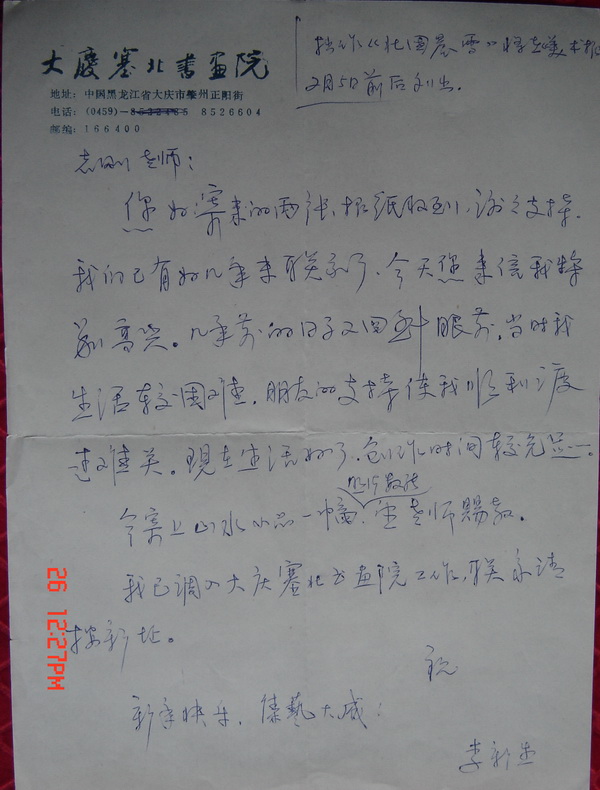 大慶塞北書畫院
地址：中国黑龙江省大庆市肇州正阳街
电话：(0459)-8532485 8526604
邮编：166400
拙作《北国晨雪》将在美术报
2月5日前后刊出.
志刚老师：
您好寄来的两张报纸收到，谢谢支持.
我们已有好几年未联系了，今天您来信我特
别高兴。几年前的日子又回到眼前，当时我
生活较困难，朋友的支持使我顺利渡
过难关。现在生活好了，创作时间较充足。
今寄上山水小品一幅，望老师赐教.
我已调入大庆塞北书画院工作，联系请
按新址。
祝
新年快乐，
李新生
26 12:27PM